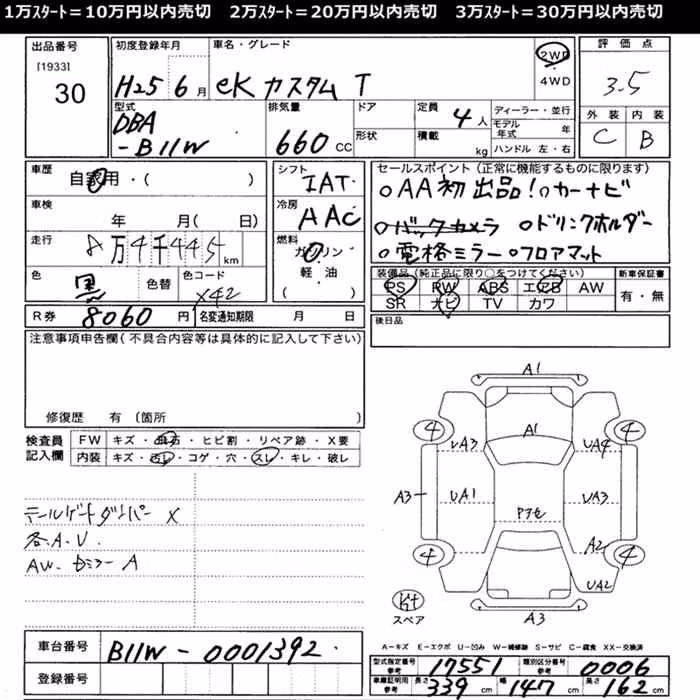 1万ｽﾀｰﾄ＝10万円以内売切　2万ｽﾀｰﾄ＝20万円以内売切　3万ｽﾀｰﾄ＝30万円以内売切
出品番号
[1933]
30
初度登録年月
H25 6月
車名・グレード
eK カスタム T
2WD
4WD
評価点
3.5
外装 内装
C B
型式
DBA
-B11W
排気量
660 CC
ドア
形状
定員
4人
積載
kg
ディーラー・並行
モデル年式 年
ハンドル 左・右
車歴
自家用・( )
車検
年 月( 日)
走行
8万4千445km
色
黒
色替
色コード
X42
シフト
IAT
冷房
AAC
燃料
ガソリン
軽油
( )
セールスポイント（正常に機能するものに限ります）
○AA初出品！○カーナビ
○バックカメラ ○ドリンクホルダー
○電格ミラー ○フロアマット
装備品（純正品に限り○をつけてください）
PS PW ABS エアB AW
SR ナビ TV カワ
新車保証書
有・無
R券 8060円
名変通知期限 月 日
後日品
注意事項申告欄（不具合内容等は具体的に記入して下さい）
修復歴 有（箇所 ）
検査員
記入欄
FW キズ・飛石・ヒビ割・リペア跡・X要
内装 キズ・汚レ・コゲ・穴・スレ・キレ・破レ
テールゲートダンパー X
各A.U.
AW. セミラー A
A1
4 A1 4
UA3 UA4
A3 UA1 UA3
Pアセ
A2
4 4
UA2
スペア
A3
A－キズ E－エクボ U－凹み W－補修跡 S－サビ C－腐食 XX－交換済
車台番号
B11W-0001392
登録番号
型式指定番号 参考 17551
類別区分番号 参考 0006
車庫証明用 参考 長さ 339 幅 147 高さ 162cm